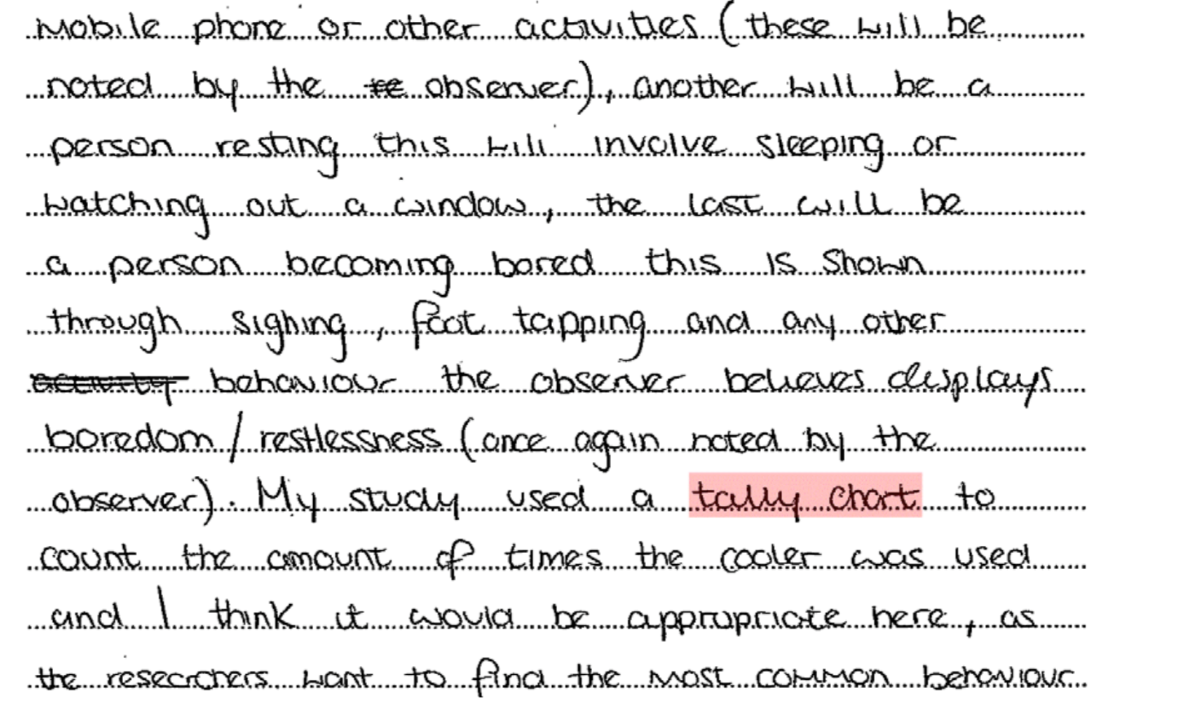 mobile phone or other activities (these will be
noted by the te observer), another will be a
person resting this will involve sleeping or
watching out a window, the last will be
a person becoming bored this is shown
through sighing, foot tapping and any other
activity behaviour the observer believes displays
boredom/restlessness (once again noted by the
observer). My study used a tally chart to
count the amount of times the cooler was used
and I think it would be appropriate here, as
the researchers want to find the most common behaviour